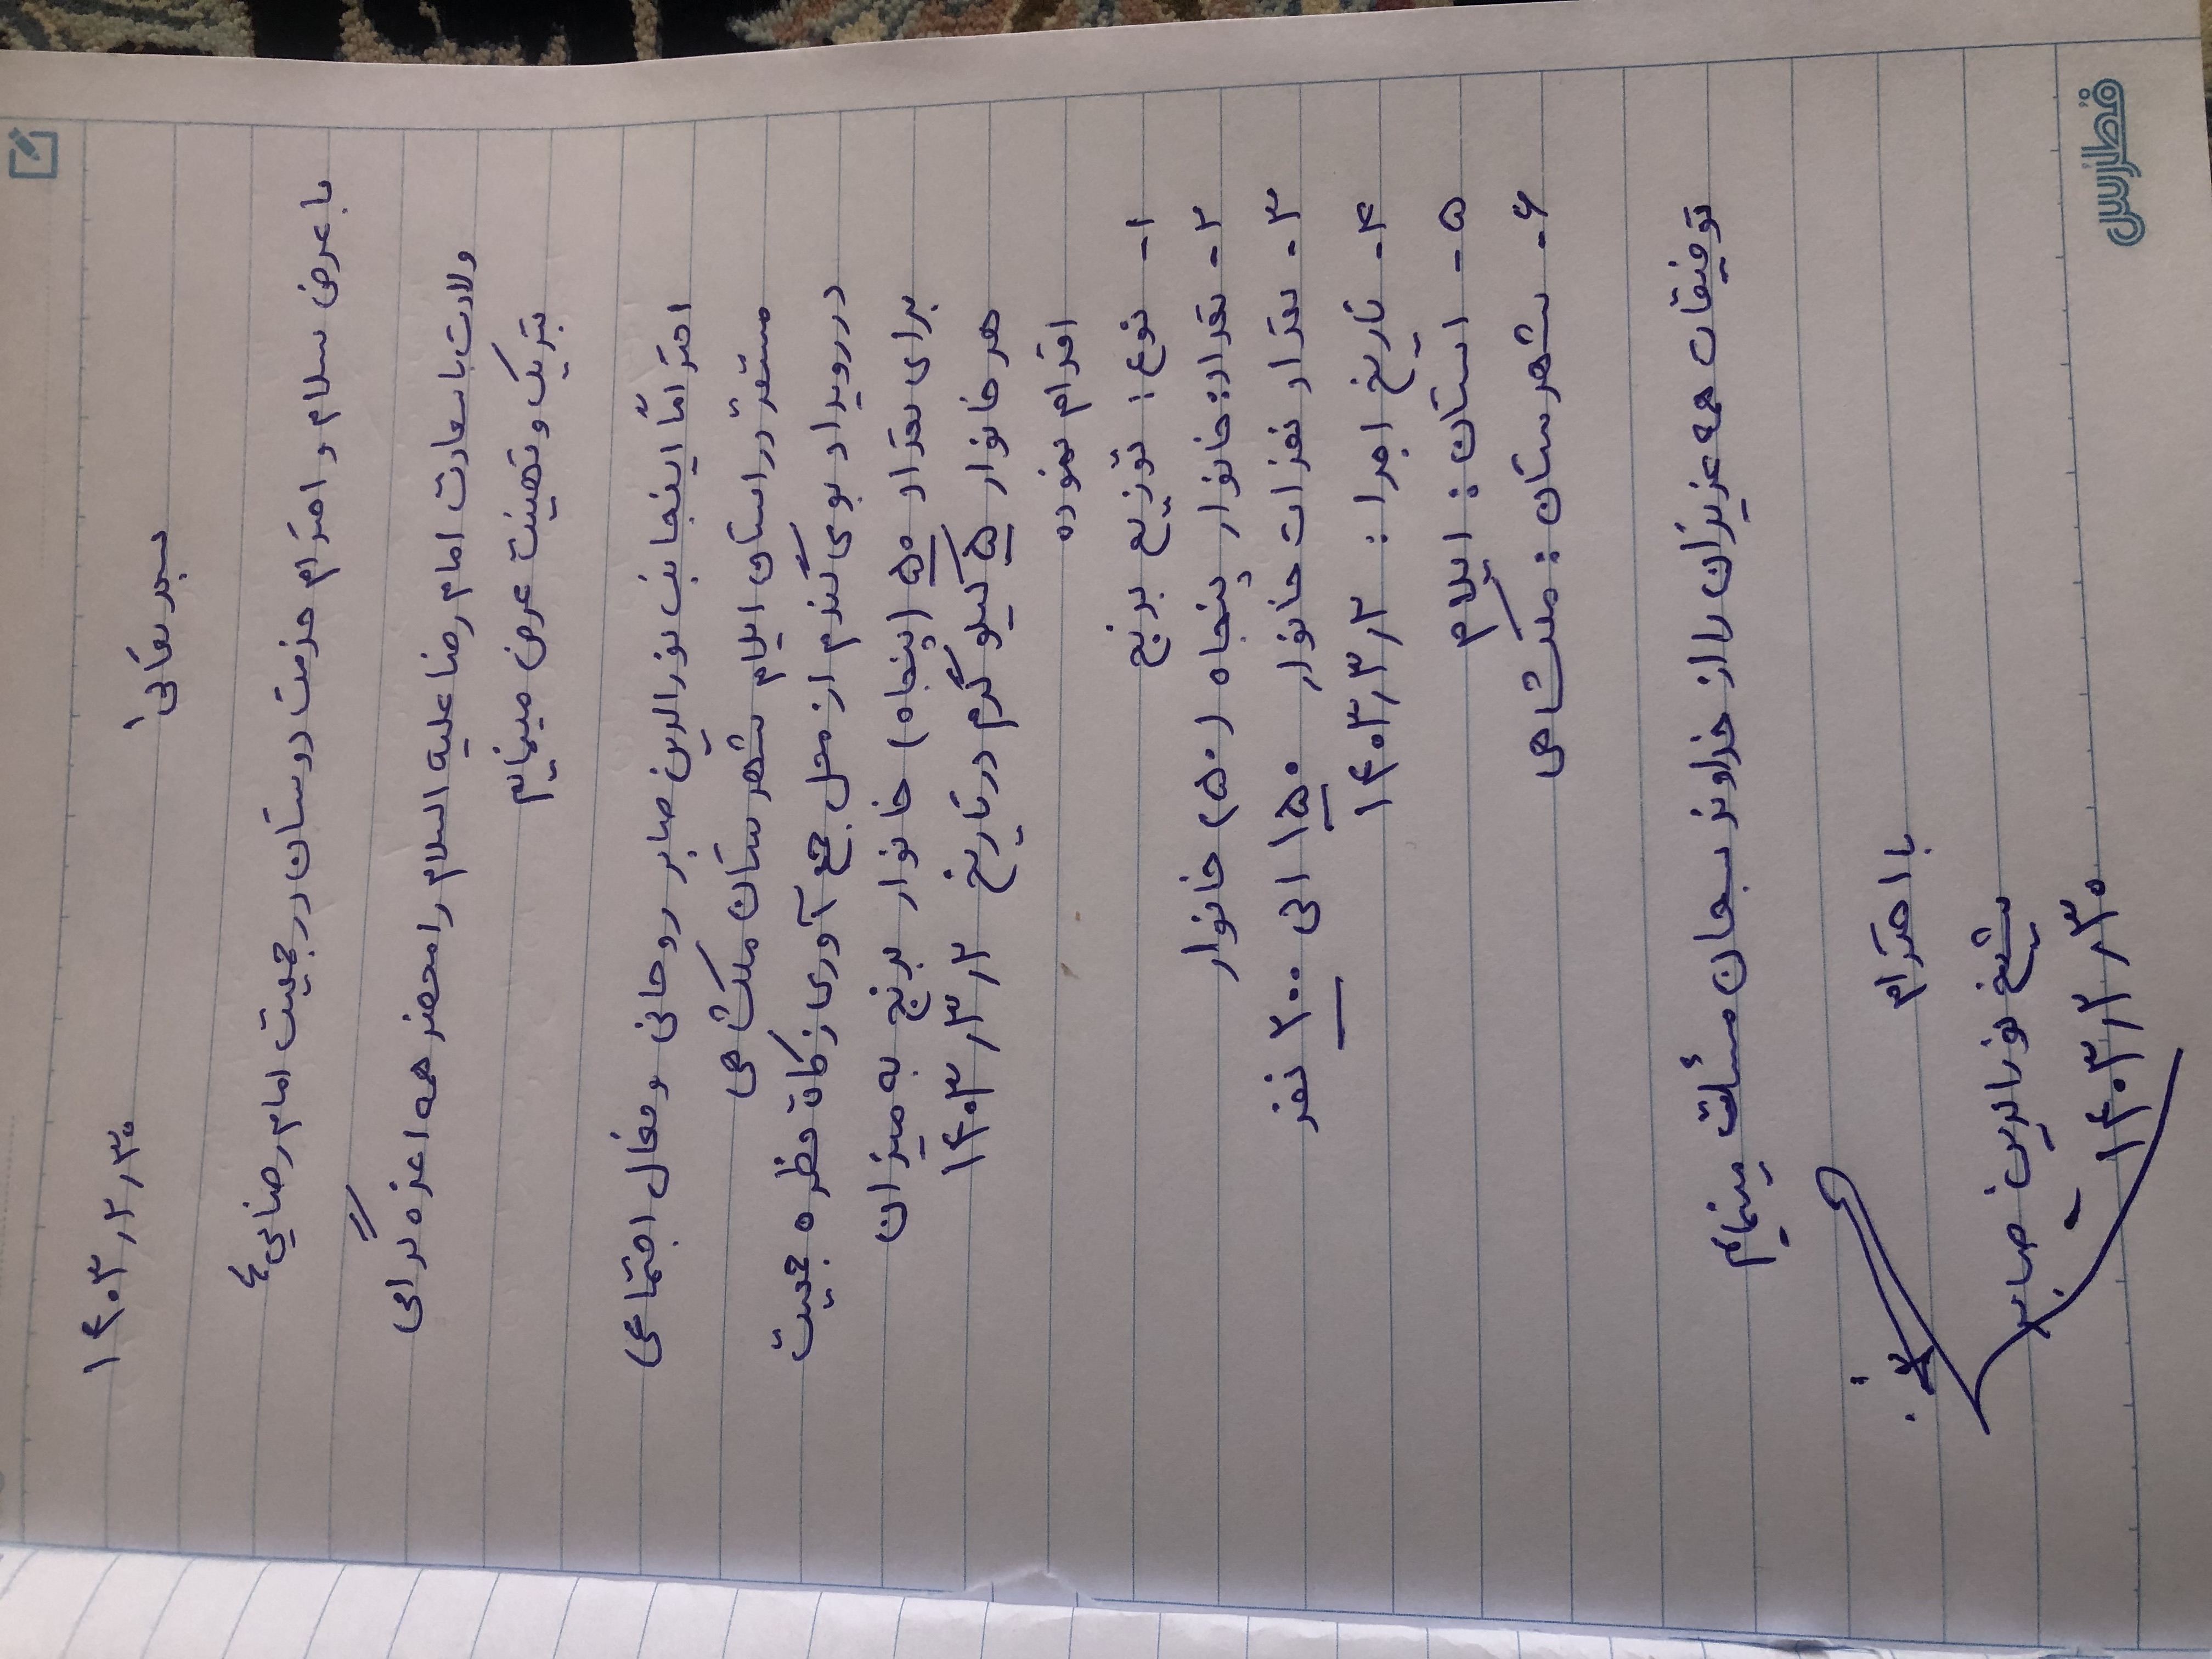 ۱۴۰۳٫۲٫۳۰
بسمه تعالی
با عرض سلام و احترام خدمت دوستان در جمعیت امام رضایی ها
ولادت با سعادت امام رضا علیه السلام را محضر همه اعزه گرامی
تبریک و تهنیت عرض مینمایم
احتراماً اینجانب نورالدین صابر روحانی و فعال اجتماعی
مستقر در استان ایلام شهرستان ملکشاهی
در رویداد بوی گندم از محل جمع آوری زکاة فطره جمعیت
برای تعداد ۵۰ (پنجاه) خانوار برنج به میزان
هر خانوار ۵ کیلو گرم در تاریخ ۱۴۰۳٫۳٫۲
اقدام نموده
۱- نوع: توزیع برنج
۲- تعداد: خانوار پنجاه (۵۰) خانوار
۳- تعداد نفرات خانوار ۱۵۰ الی ۲۰۰ نفر
۴- تاریخ اجرا: ۱۴۰۳٫۳٫۲
۵- استان: ایلام
۶- شهرستان: ملکشاهی
توفیقات همه عزیزان را از خداوند سبحان مسئلت مینمایم
با احترام
شیخ نورالدین صابر
۱۴۰۳٫۲٫۳۰
فطرس